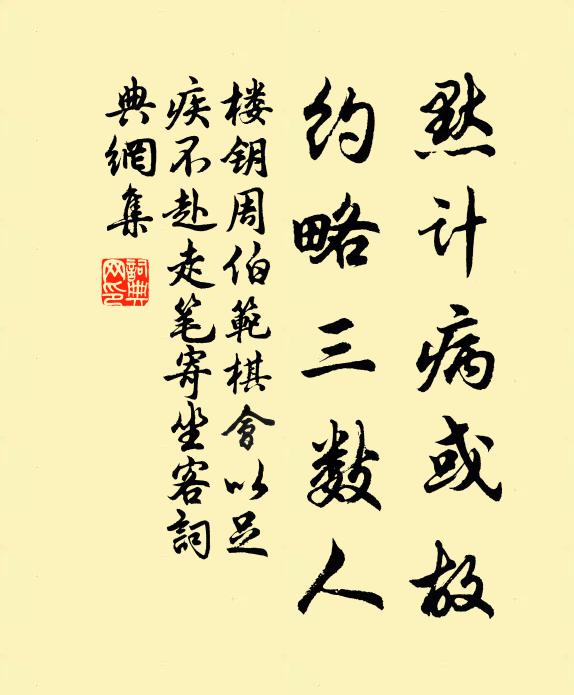 默计病或故
约略三数人
楼钥周伯範棋會以足
疾不赴走笔寄坐客詞
典網集
詞典网印